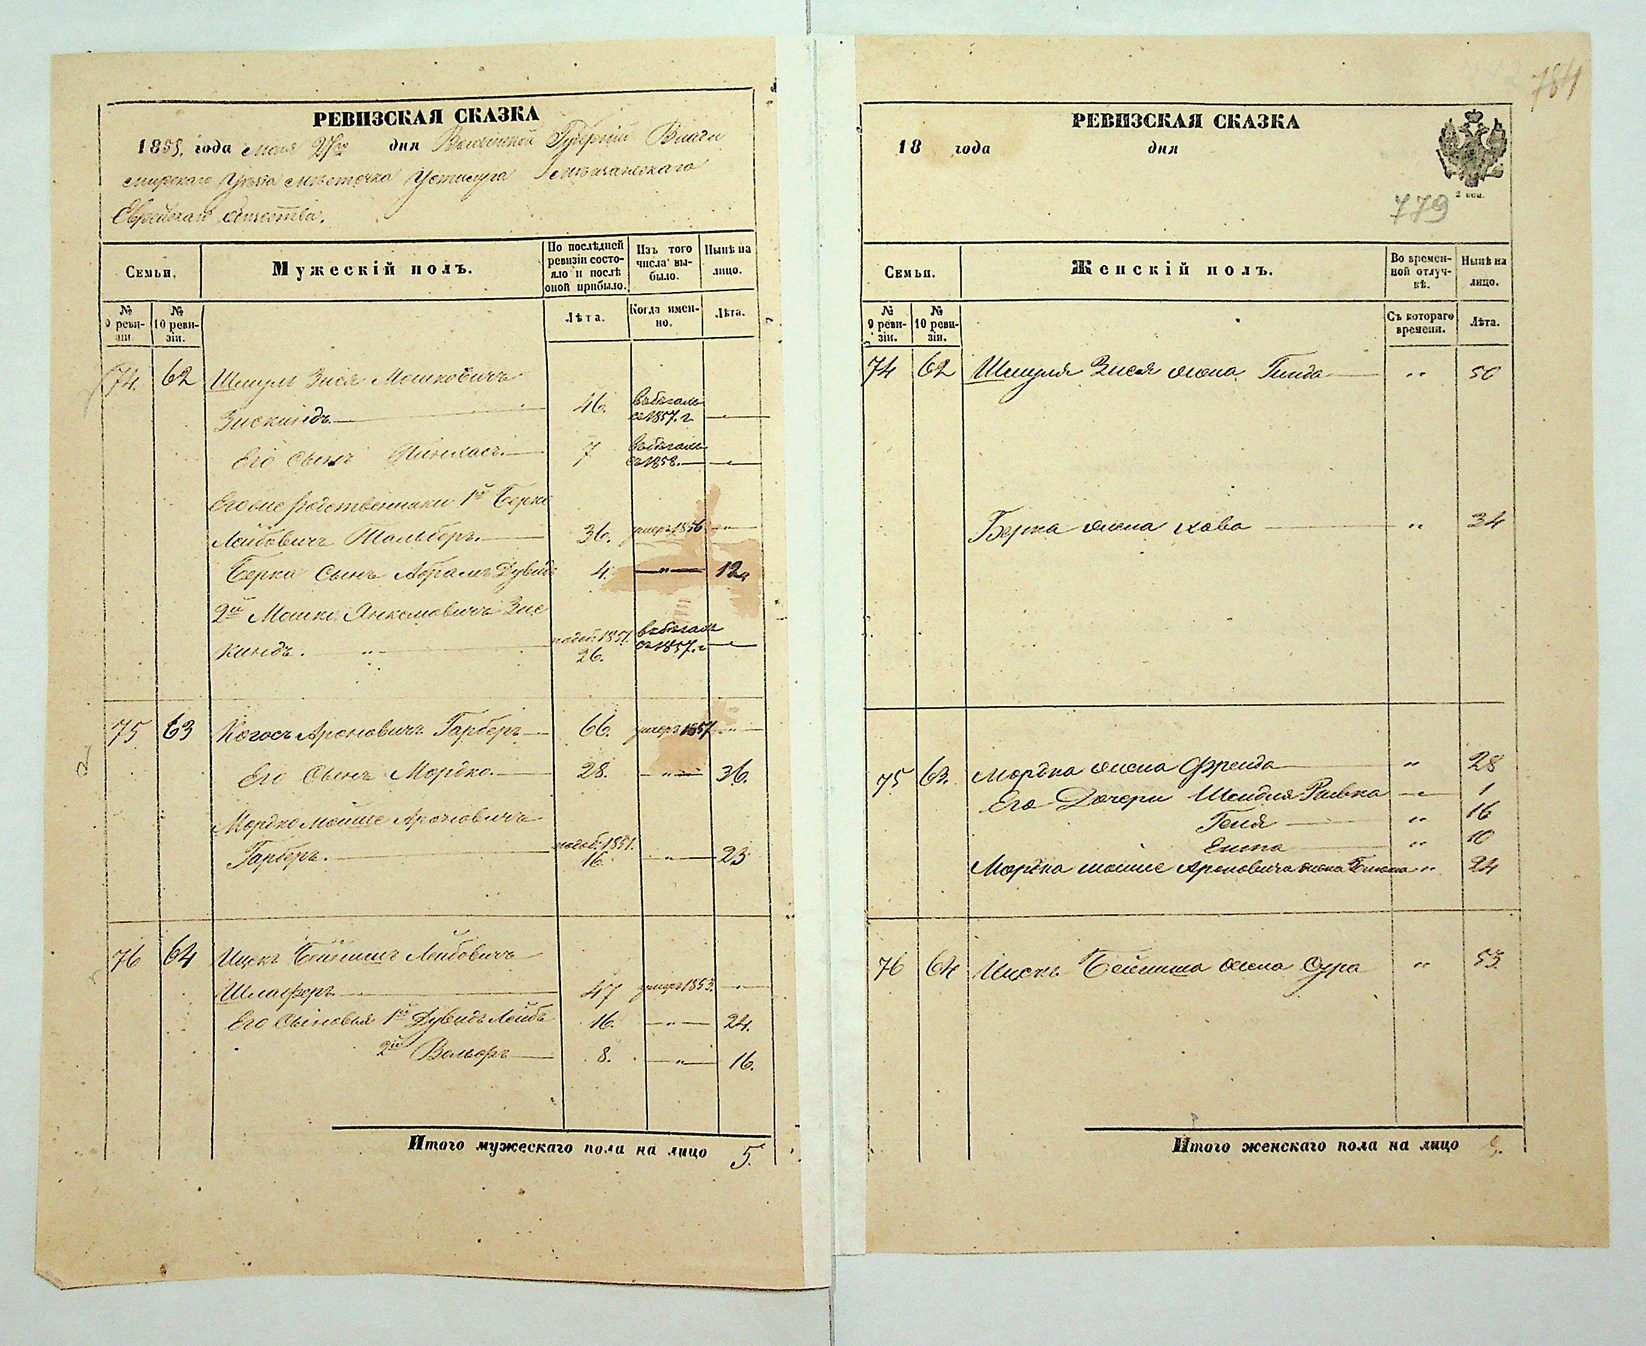 РЕВИЗСКАЯ СКАЗКА
1858. года мая 27го дня Волынской Губернии Влади
мирскаго Уезда местечка Устилуга Мещанскаго
Еврейскаго Общества.
Семьи.
Мужескій полъ.
По послѣдней ревизіи состояло и послѣ оной прибыло.
Изъ того числа выбыло.
Нынѣ на лицо.
№ 9 ревизіи.
№ 10 ревизіи.
Лѣта.
Когда именно.
Лѣта.
74 62 Шмуль Зися Мошковичъ
Зискиндъ. 46. въ бѣгахъ съ 1857. г.
Его Сынъ 7 въ бѣгахъ съ 1858.
Его же родственники 1й Берко
Лейбовичъ 36. умеръ 1856
Берка Сынъ Абрамъ Дувидъ 4. " 12.
2й Мошко Янкелевичъ Зис
киндъ. " 1851. 26. въ бѣгахъ съ 1857. г
75 63 Когосъ Ароновичъ Гарберъ 66. умеръ 1857
Его Сынъ Мордко 28. " 36.
Мордко Мойше Ароновичъ
Гарберъ. 1851. 16. " 23
76 64 Ицкъ Бейнишъ Лейбовичъ
Шлаферъ 47 умеръ 1853.
Его Сыновья 1й Дувидъ Лейбъ 16. " 24.
2й Вольфъ 8. " 16.
Итого мужескаго пола на лицо 5.
784
РЕВИЗСКАЯ СКАЗКА
18 года дня
2 коп.
779
Семьи.
Женскій полъ.
Во временной отлучкѣ.
Нынѣ на лицо.
№ 9 ревизіи.
№ 10 ревизіи.
Съ котораго времени.
Лѣта.
74 62 Шмуля Зися жена Гинда " 50
Берка жена Хава " 34
75 63. Мордка жена Фрейда " 28
Его Дочери Шендля Ривка " 1
Геня " 16
Ента " 10
Мордка Мойше Ароновича жена " 24
76 64 Ицкъ Бейниша жена Сура " 53
Итого женскаго пола на лицо